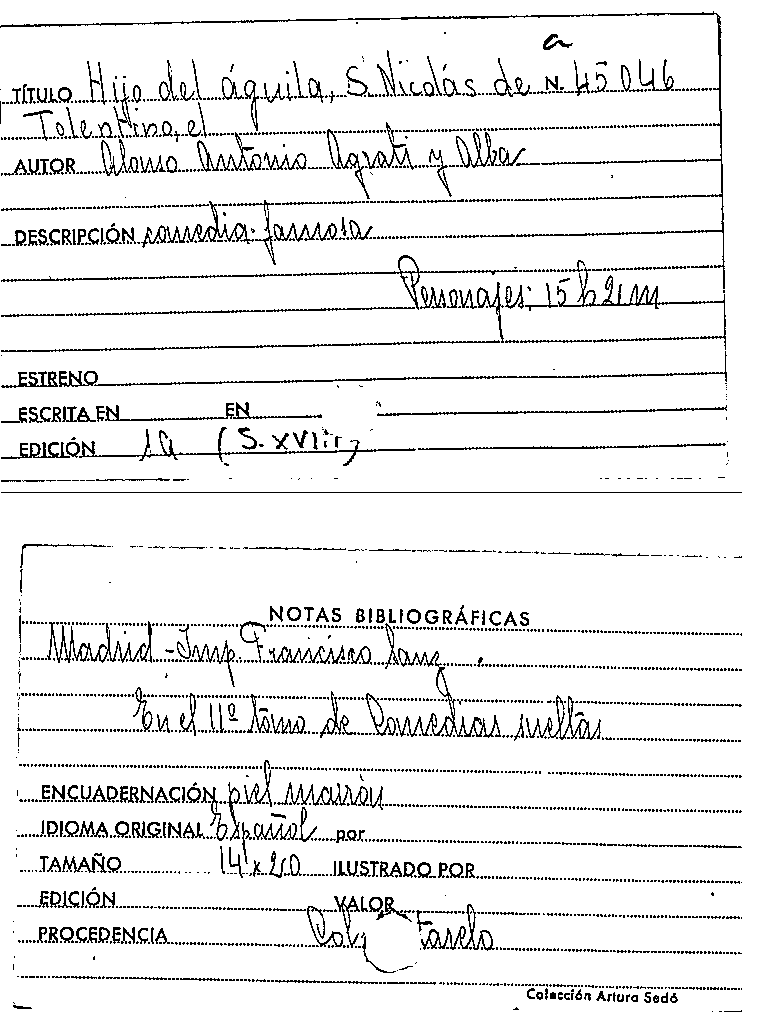 a
TÍTULO Hijo del águila, S. Nicolás de N. 45046
Tolentino, el
AUTOR Alonso Antonio Agrati y Alba
DESCRIPCIÓN comedia famosa
Personajes: 15 h 2 m
ESTRENO
ESCRITA EN EN
EDICIÓN 1a (S. XVII)
NOTAS BIBLIOGRÁFICAS
Madrid - Imp Francisco Sanz.
En el 11º tomo de Comedias sueltas
ENCUADERNACIÓN piel marrón
IDIOMA ORIGINAL Español por
TAMAÑO 14 x 20 ILUSTRADO POR
EDICIÓN VALOR
PROCEDENCIA
Colección Arturo Sedó